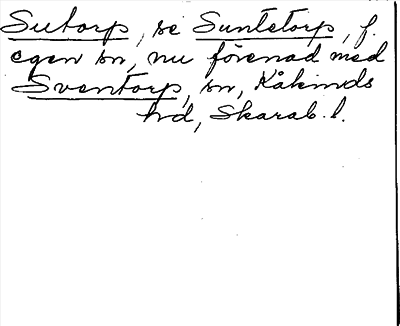 Sutorp, se Suntetorp, f.
egen sn, nu förenad med
Sventorp, sn, Kåkinds
hd, Skarab. l.